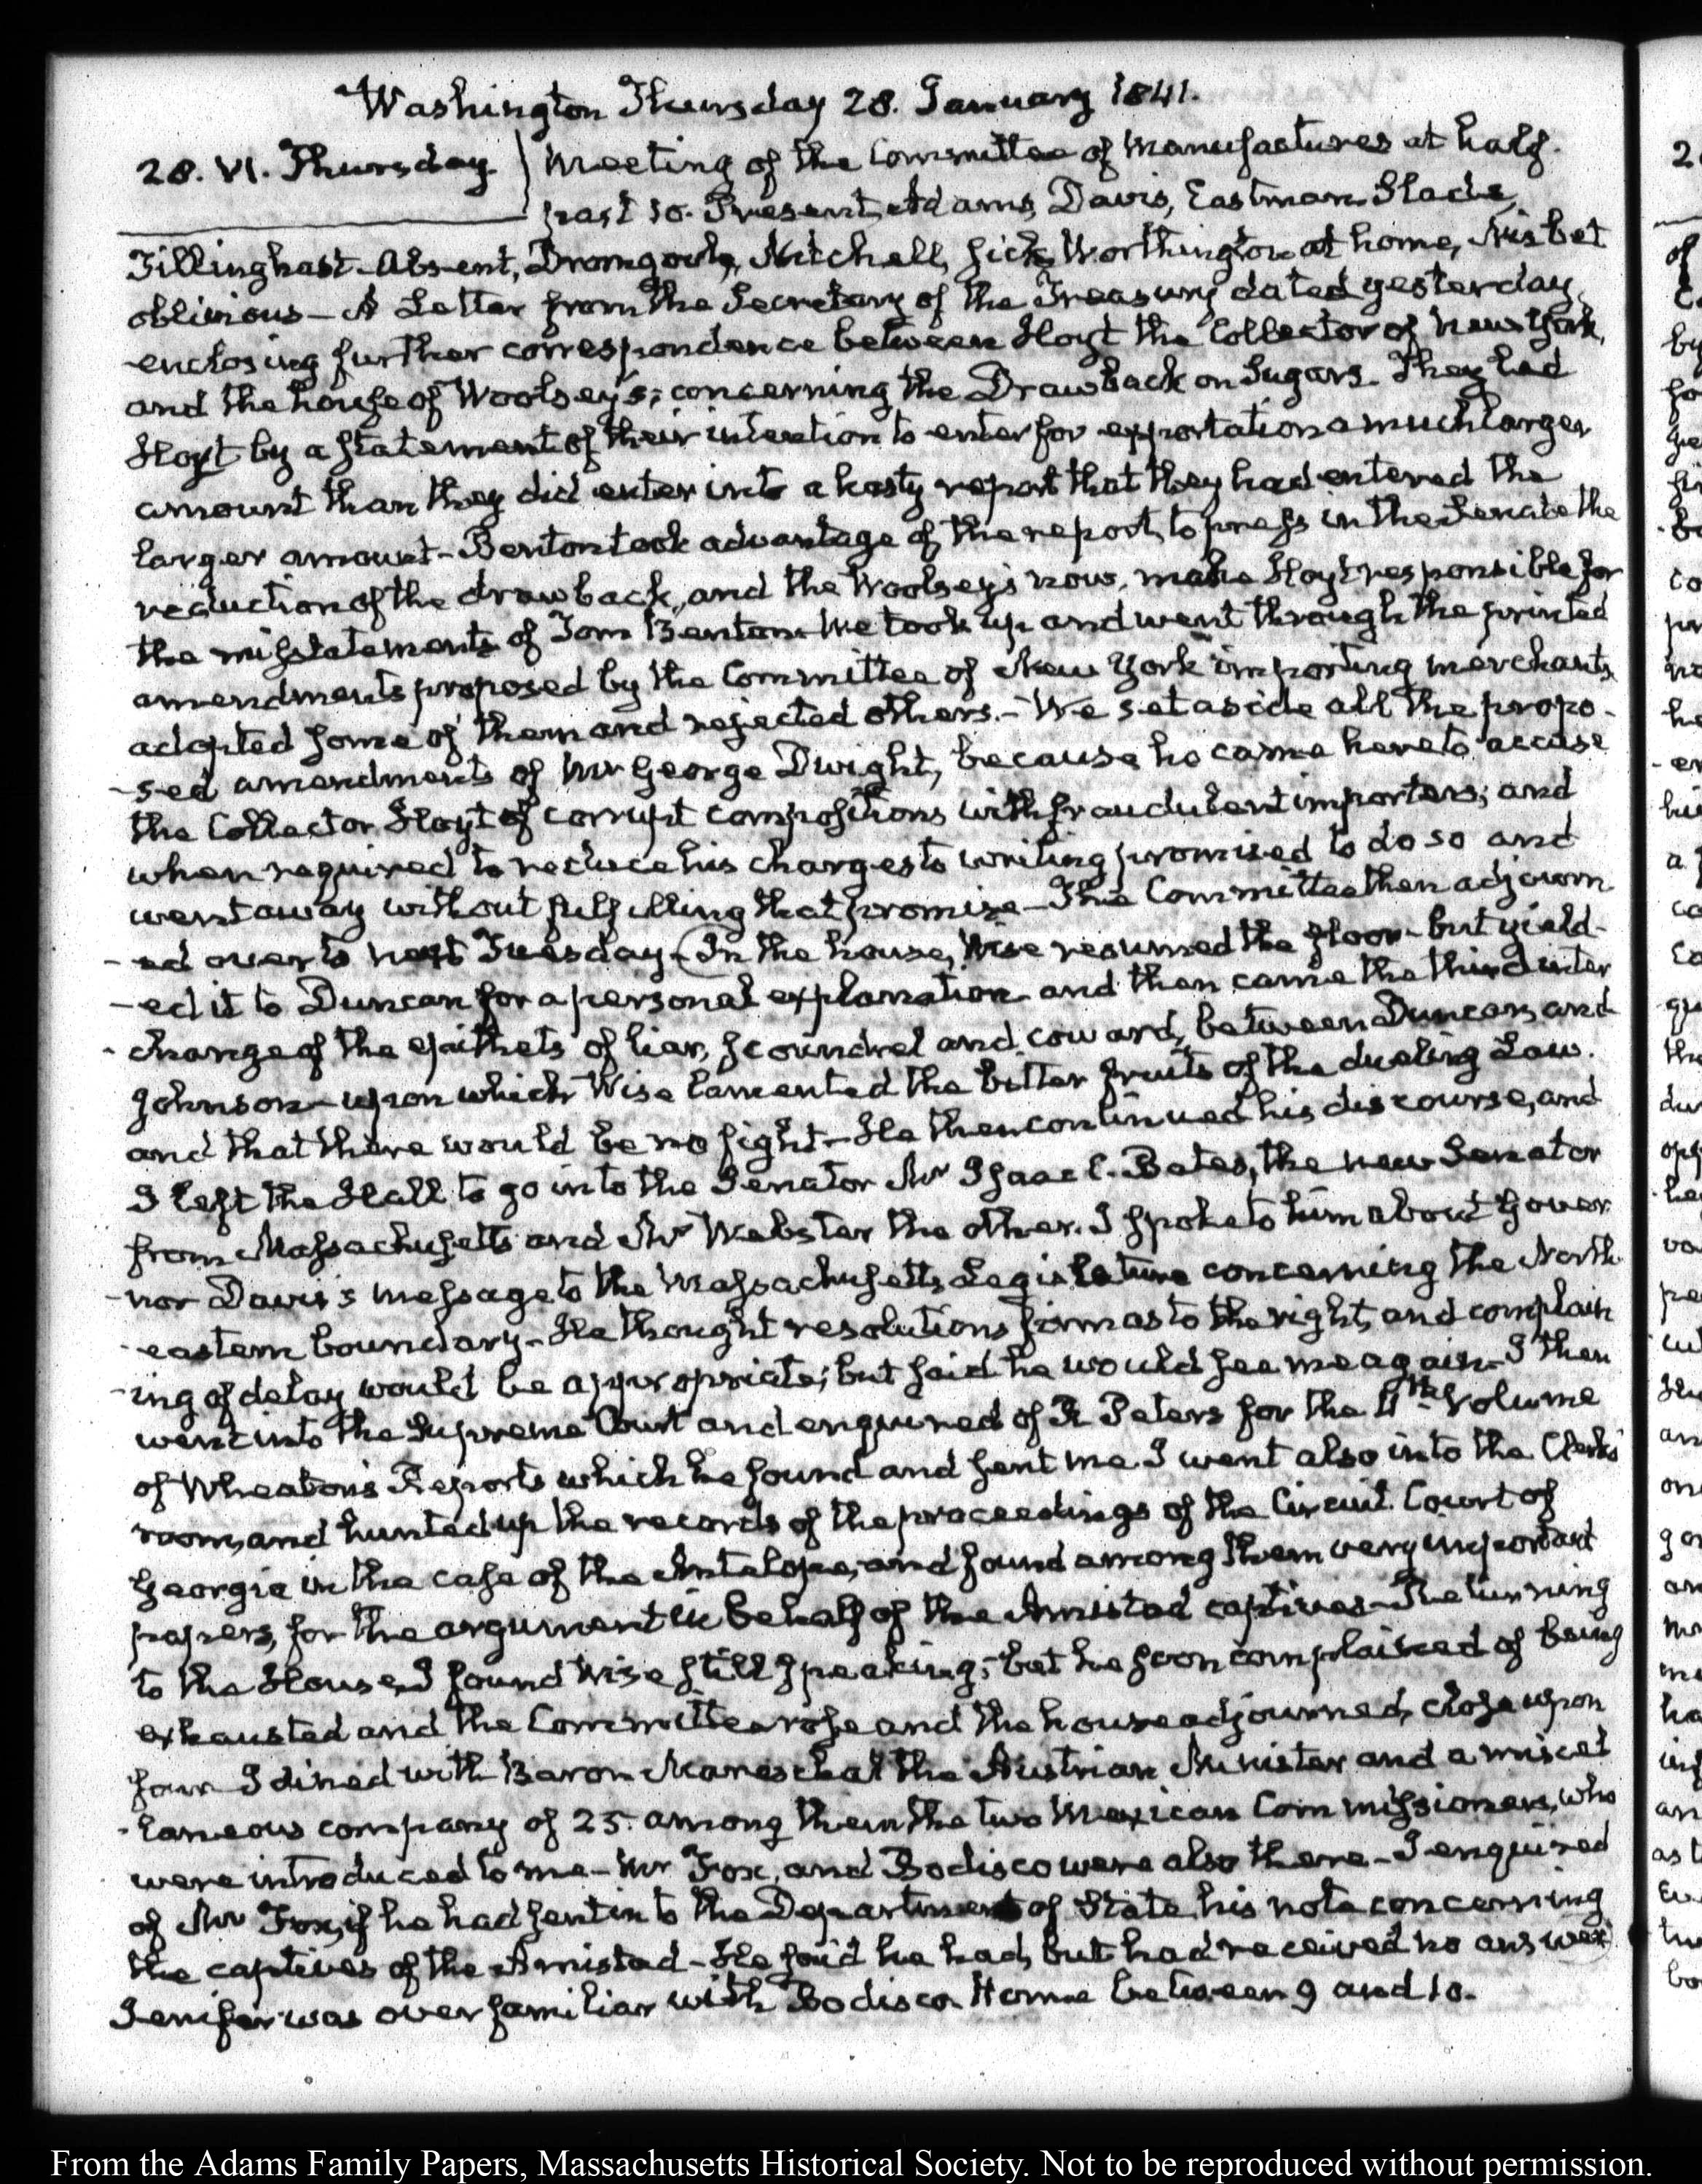 Washington Thursday 28. January 1841.
28. VI. Thursday. Meeting of the Committee of Manufactures at half
past 10. Present, Adams, Davis, Eastman Slade,
Tillinghast. Absent, Dromgoole, Mitchell, sick, Worthington at home, Nisbet
oblivious — A Letter from the Secretary of the Treasury dated yesterday,
enclosing further correspondence between Hoyt the Collector of New York,
and the house of Woolsey's; concerning the Drawback on Sugars. They led
Hoyt by a statement of their intention to enter for exportation a much larger
amount than they did enter into a hasty report that they had entered the
larger amount — Benton took advantage of the report, to press in the Senate the
reduction of the drawback, and the Woolsey's now, make Hoyt responsible for
the misstatements of Tom Benton. We took up and went through the printed
amendments proposed by the Committee of New York importing merchants,
adopted some of them and rejected others. — We set aside all the propo-
-sed amendments of Mr George Dwight, because he came here to accuse
the Collector Hoyt of corrupt compositions with fraudulent importers; and
when required to reduce his charges to writing promised to do so and
went away without fulfilling that promise — The Committee then adjourn
-ed over to next Tuesday — In the house, Wise resumed the floor — but yield-
-ed it to Duncan for a personal explanation and then came the third inter
-change of the epithets of liar, scoundrel and coward, between Duncan, and
Johnson — upon which Wise lamented the bitter fruits of the dueling Law.
and that there would be no fight — He then continued his discourse, and
I left the Hall to go into the Senator Mr Isaac C. Bates, the new Senator
from Massachusetts and Mr Webster the other. I spoke to him about Gover
-nor Davis's message to the Massachusetts Legislature concerning the North
-eastern boundary — He thought resolutions firm as to the right, and complain
-ing of delay would be appropriate; but said he would see me again — I then
went into the Supreme Court and enquired of R Peters for the 11th Volume
of Wheaton's Reports which he found and sent me. I went also into the Clerks'
room, and hunted up the records of the proceedings of the Circuit Court of
Georgia in the case of the Antelope, and found among them very important
papers, for the argument in behalf of the Amistad captives — Returning
to the House, I found Wise still speaking; but he soon complained of being
exhausted and the Committee rose and the house adjourned, close upon
four I dined with Baron Mareschal the Austrian Minister and a miscel
-laneous company of 25. among them the two Mexican Commissioners, who
were introduced to me — Mr Fox, and Bodisco were also there — I enquired
of Mr Fox, if he had sent in to the Department of State, his note concerning
the captives of the Amistad — He said he had, but had received no answer.
Jenifer was over familiar with Bodisco. Home between 9 and 10.
From the Adams Family Papers, Massachusetts Historical Society. Not to be reproduced without permission.